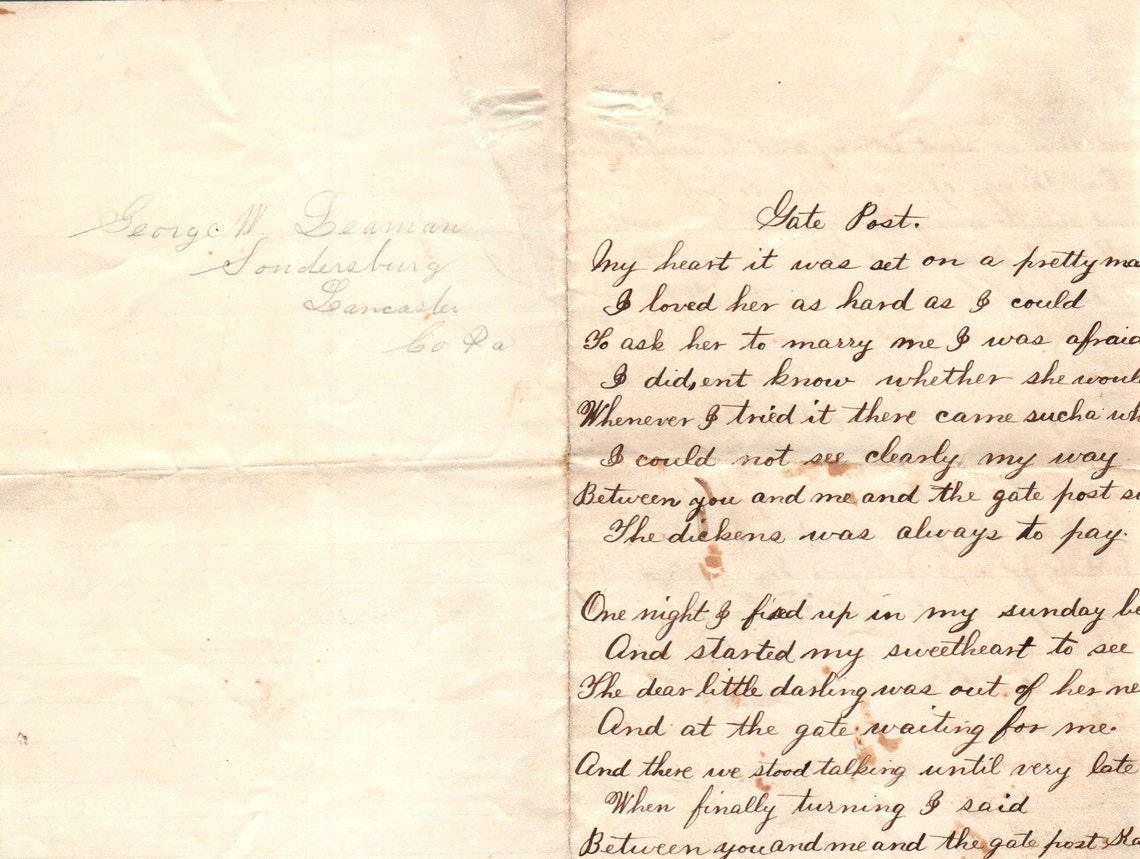 George W. Leaman
Sondersburg
Lancaster
Co Pa
Gate Post.
My heart it was set on a pretty
I loved her as hard as I could
To ask her to marry me I was afraid
I did,ent know whether she
Whenever I tried it there came sucha
I could not see clearly my way
Between you and me and the gate post
The dickens was always to pay.
One night I fixed up in my sunday
And started my sweetheart to see
The dear little darling was out of her
And at the gate waiting for me.
And there we stood talking until very late
When finally turning I said
Between you and me and the gate post